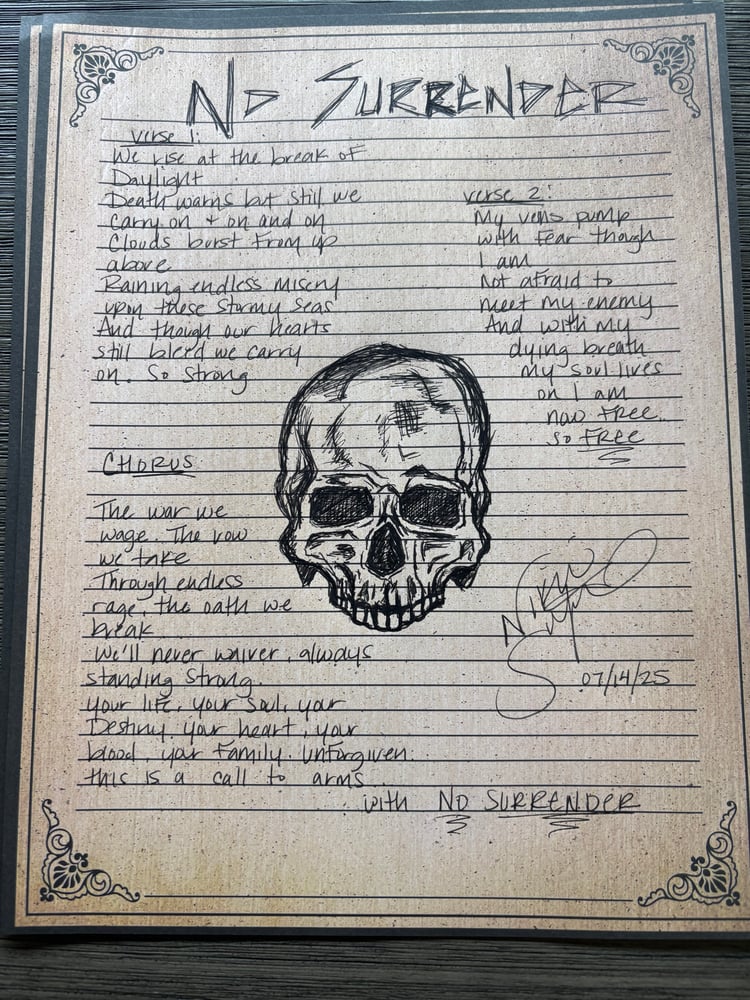 No SURRENDER
verse 1:
We rise at the break of
Daylight
Death warns but still we
carry on + on and on
Clouds burst from up
above
Raining endless misery
upon these stormy seas
And though our hearts
still bleed we carry
on. So strong
verse 2:
My veins pump
with fear though
I am
Not afraid to
meet my enemy
And with my
dying breath
my soul lives
on I am
now FREE
so FREE
CHORUS
The war we
wage. The vow
we take
Through endless
rage, the oath we
break
We'll never waiver, always
standing strong.
your life, your soul, your
Destiny. your heart, your
blood, your Family. Unforgiven.
this is a call to arms
with NO SURRENDER
Nikii
07/14/25